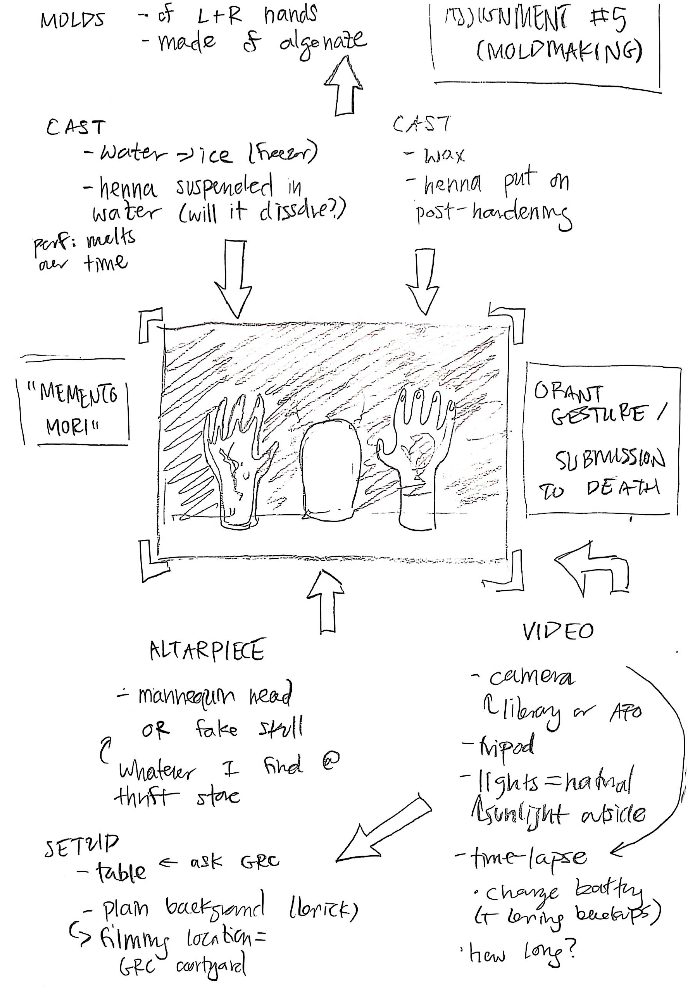 MOLDS - of L+R hands
- made of algenate
ASSIGNMENT #5
(MOLDMAKING)
CAST
- water → ice (freezer)
- henna suspended in
water (will it dissolve?)
perf: melts
over time
CAST
- wax
- henna put on
post-hardening
"MEMENTO
MORI"
ORANT
GESTURE /
SUBMISSION
TO DEATH
ALTARPIECE
- mannequin head
OR fake skull
whatever I find @
thrift store
SETUP
- table ← ask GRC
- plain background (brick)
↳ filming location =
GRC courtyard
VIDEO
- camera
library or APO
- tripod
- lights = natural
sunlight outside
- time-lapse
· charge battery
(+ bring backups)
· how long?